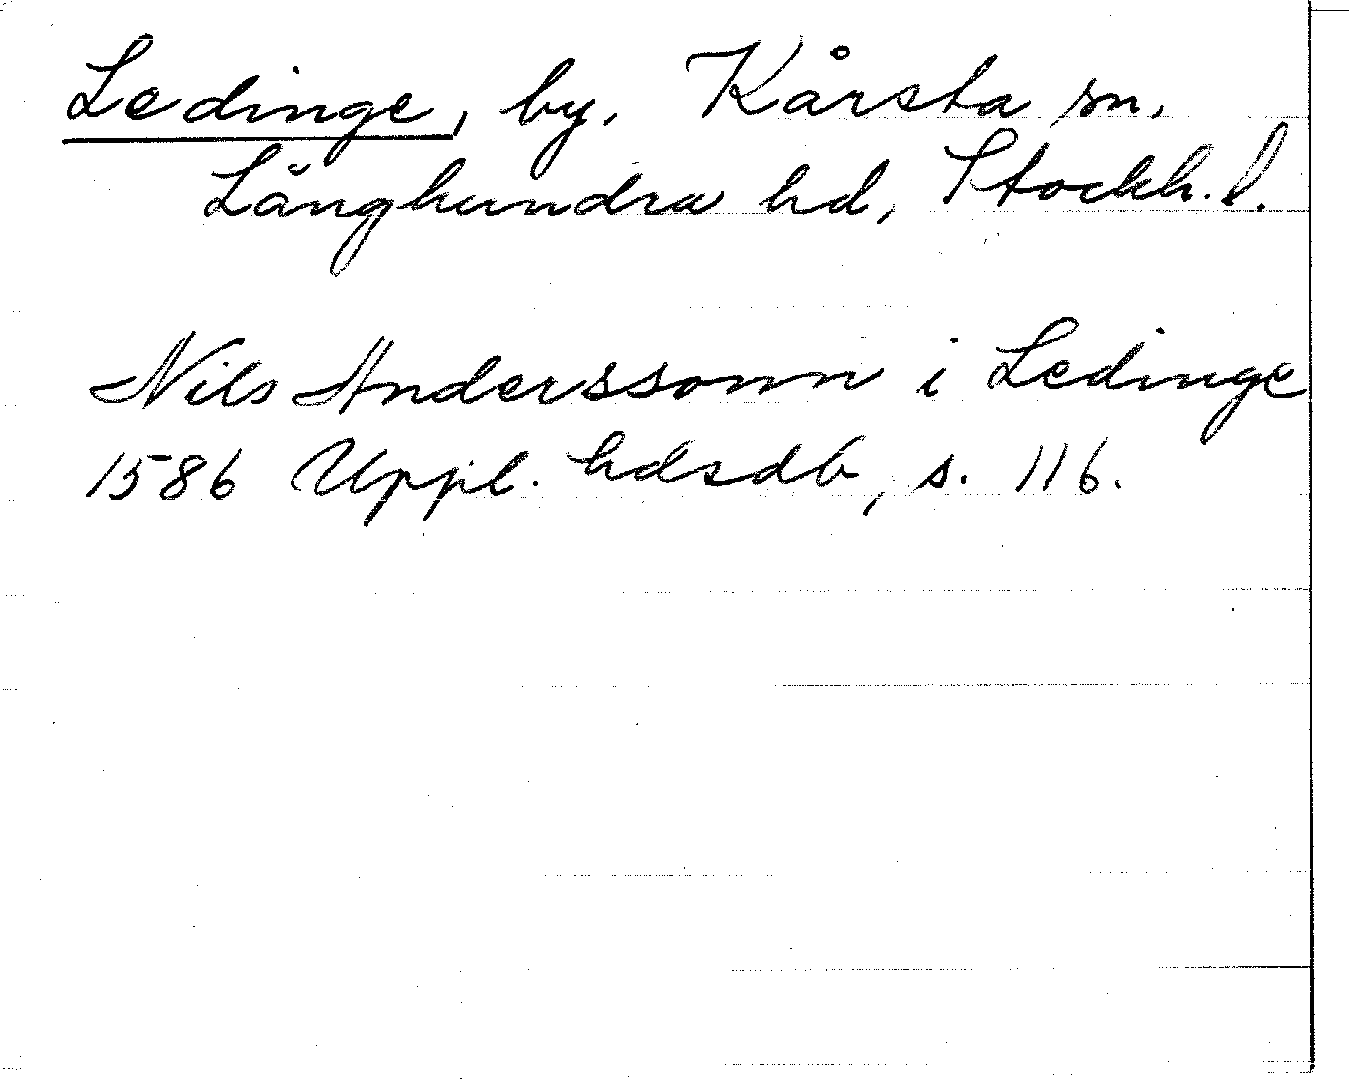 Ledinge, by. Kårsta sn.
Långhundra hd, Stockh. l.
Nils Anderssonn i Ledinge
1586 Uppl. hdsdb, s. 116.